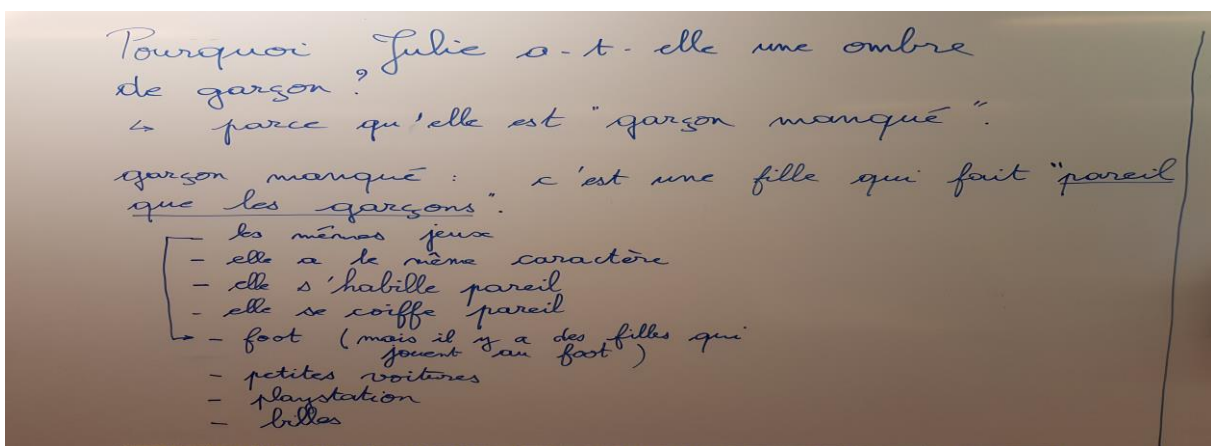 Pourquoi Julie a-t-elle une ombre
de garçon ?
↳ parce qu'elle est "garçon manqué".
garçon manqué : c'est une fille qui fait "pareil
que les garçons".
- les mêmes jeux
- elle a le même caractère
- elle s'habille pareil
- elle se coiffe pareil
→ - foot (mais il y a des filles qui
jouent au foot)
- petites voitures
- playstation
- billes